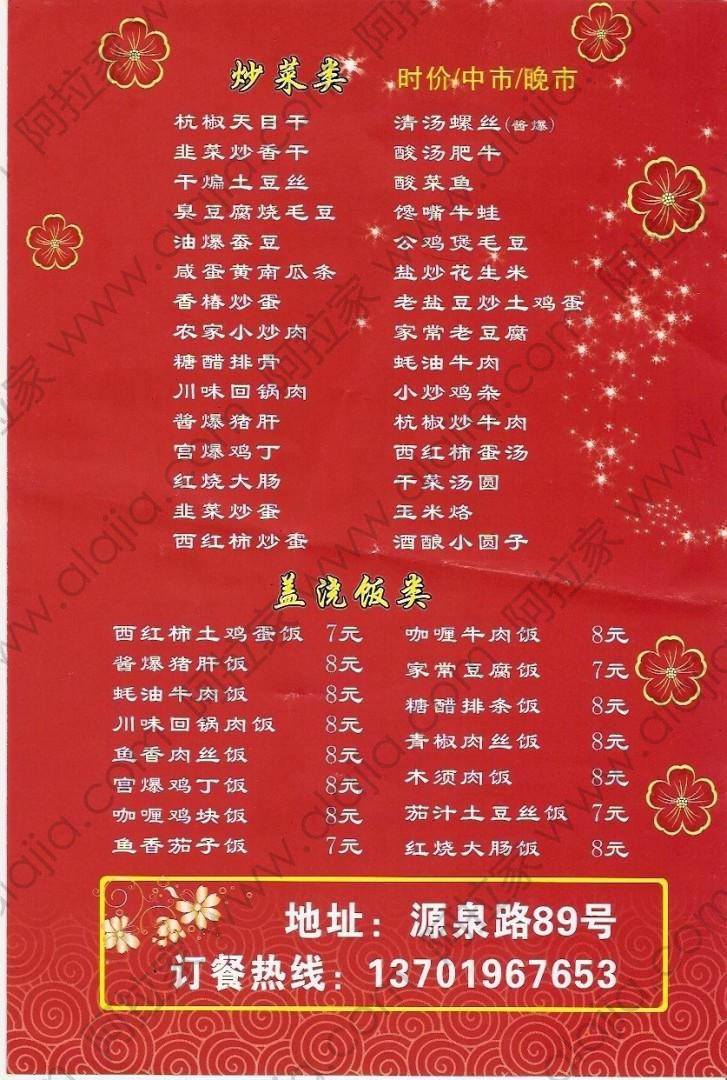 炒菜类 时价/中市/晚市
杭椒天目干 清汤螺丝(酱爆)
韭菜炒香干 酸汤肥牛
干煸土豆丝 酸菜鱼
臭豆腐烧毛豆 馋嘴牛蛙
油爆蚕豆 公鸡煲毛豆
咸蛋黄南瓜条 盐炒花生米
香椿炒蛋 老盐豆炒土鸡蛋
农家小炒肉 家常老豆腐
糖醋排骨 蚝油牛肉
川味回锅肉 小炒鸡杂
酱爆猪肝 杭椒炒牛肉
宫爆鸡丁 西红柿蛋汤
红烧大肠 干菜汤圆
韭菜炒蛋 玉米烙
西红柿炒蛋 酒酿小圆子
盖浇饭类
西红柿土鸡蛋饭 7元 咖喱牛肉饭 8元
酱爆猪肝饭 8元 家常豆腐饭 7元
蚝油牛肉饭 8元 糖醋排条饭 8元
川味回锅肉饭 8元 青椒肉丝饭 8元
鱼香肉丝饭 8元 木须肉饭 8元
宫爆鸡丁饭 8元 茄汁土豆丝饭 7元
咖喱鸡块饭 8元 红烧大肠饭 8元
鱼香茄子饭 7元
地址：源泉路89号
订餐热线：13701967653
阿拉家 www.alajia.com